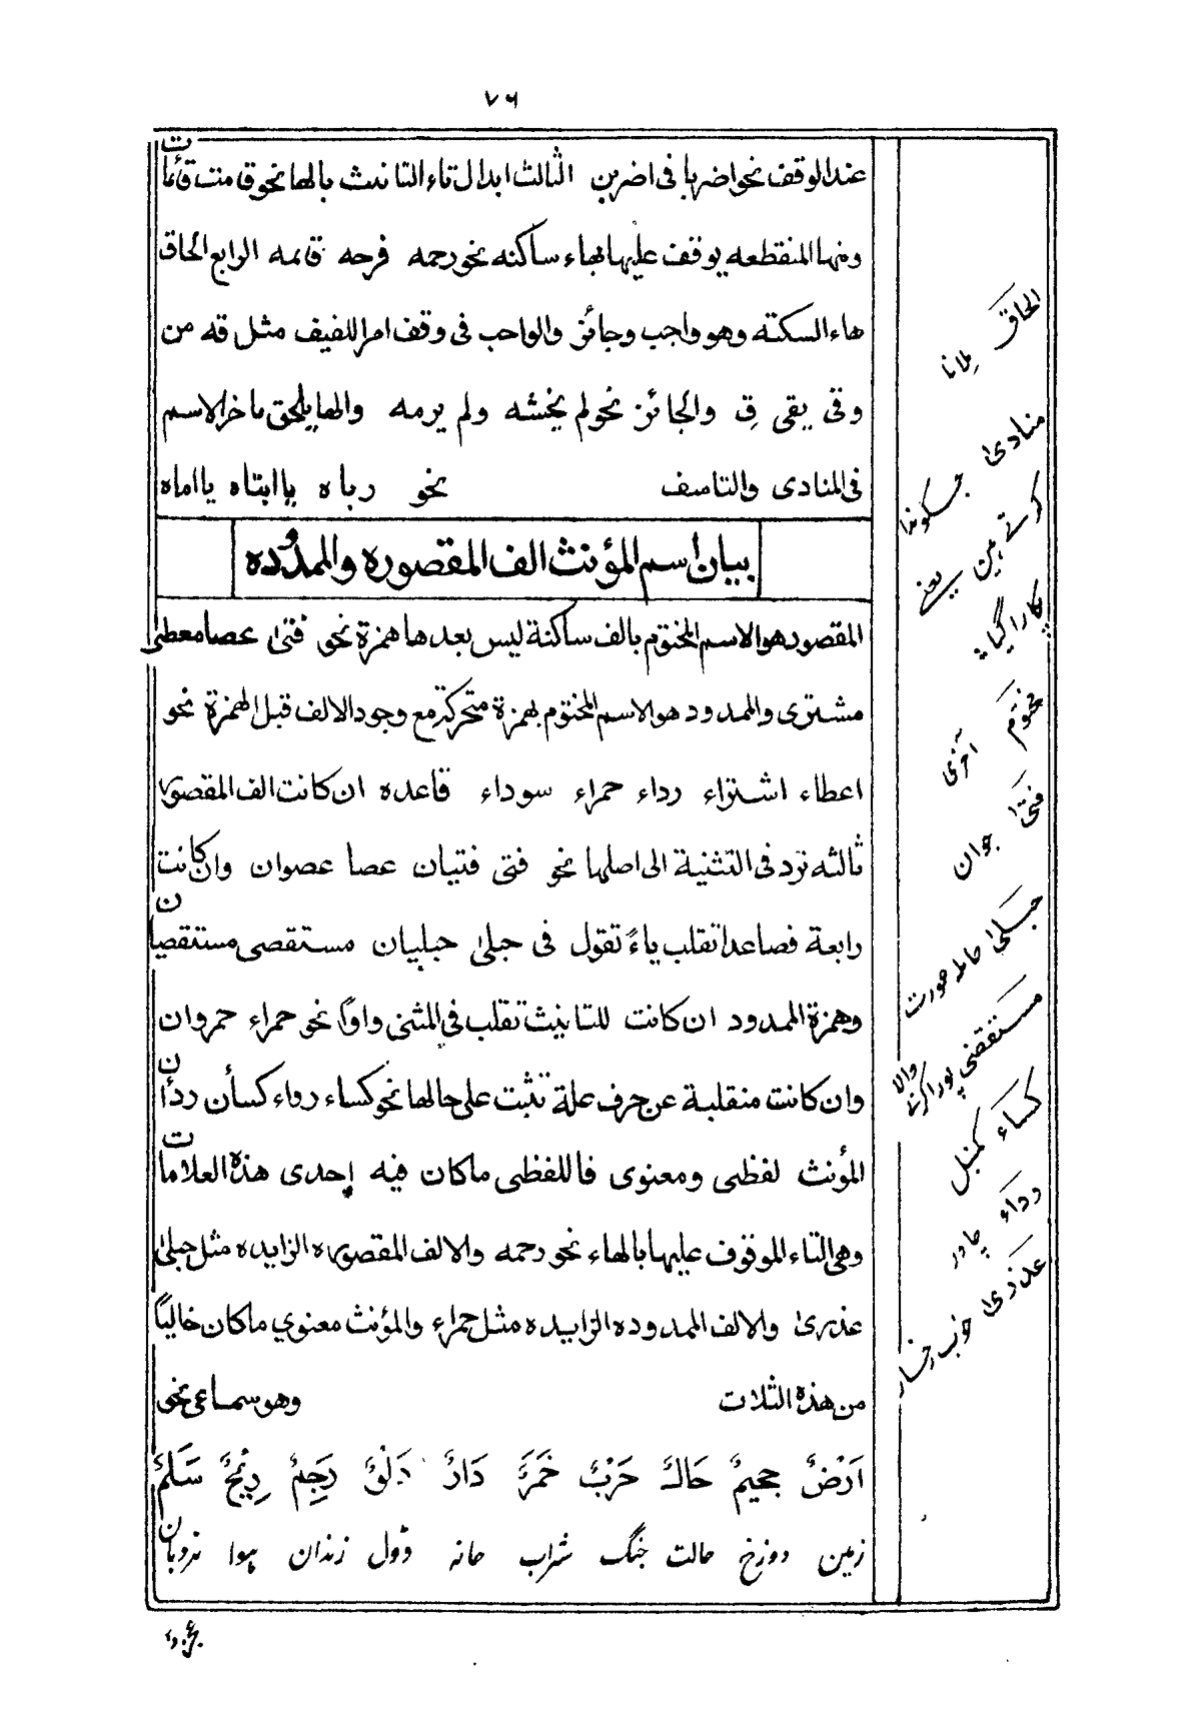 ٧٦
عند الوقف نحو اضربا فى اضربن الثالث ابدال تاء التانيث بالها نحو قامت قائمات
ومنها المنقطعه يوقف عليها بهاء ساكنه نحو رحمه فرحه قائمه الرابع الحاق
هاء السكته وهو واجب وجائز والواجب فى وقف امر اللفيف مثل قه من
وقى يقى قِ والجائز نحو لم يخشه ولم يرمه والها يلحق ماخر الاسم
فى المنادى والتاسف نحو رباه ياابتاه يااماه
بيان اسم المؤنث الف المقصوره والممدوده
المقصور هو الاسم المختوم بالف ساكنة ليس بعدها همزة نحو فتىٰ عصا معطىٰ
مشترى والممدود هو الاسم المختوم بهمزة متحركة مع وجود الالف قبل الهمزة نحو
اعطاء اشتراء رداء حمراء سوداء قاعده ان كانت الف المقصوره
ثالثه ترد فى التثنية الى اصلها نحو فتى فتيان عصا عصوان وان كانت
رابعة فصاعدا تقلب ياءً تقول فى حبلىٰ حبليان مستقصى مستقصيان
وهمزة الممدود ان كانت للتانيث تقلب فى المثنى واوًا نحو حمراء حمروان
وان كانت منقلبة عن حرف علة تثبت على حالها نحو كساء رداء كسأن ردأن
المؤنث لفظى ومعنوى فاللفظى ماكان فيه إحدى هذه العلامات
وهى التاء الموقوف عليها بالهاء نحو رحمه والالف المقصوره الزايده مثل حبلىٰ
عذرىٰ والالف الممدوده الزايده مثل حمراء والمؤنث معنوي ماكان خاليًا
من هذه الثلات وهو سماعى نحو
اَرْضٌ جحيمٌ حَالٌ حَرْبٌ خَمَرٌ دَارٌ دَلْوٌ رَحِمٌ رِيْحٌ سَلَمٌ
زمين دوزخ حالت جنگ شراب خانه ڈول زندان ہوا نردبان
الحاق ملانا
منادىٰ جسكو ندا
كرتے ہين يعنے
پكارا گيا
مختوم آخرى
فتىٰ جوان
حبلىٰ حامله عورت
مستقصى پورا كرنے والا
كساء كمبل
رداء چادر
عذرىٰ خوب رخسار